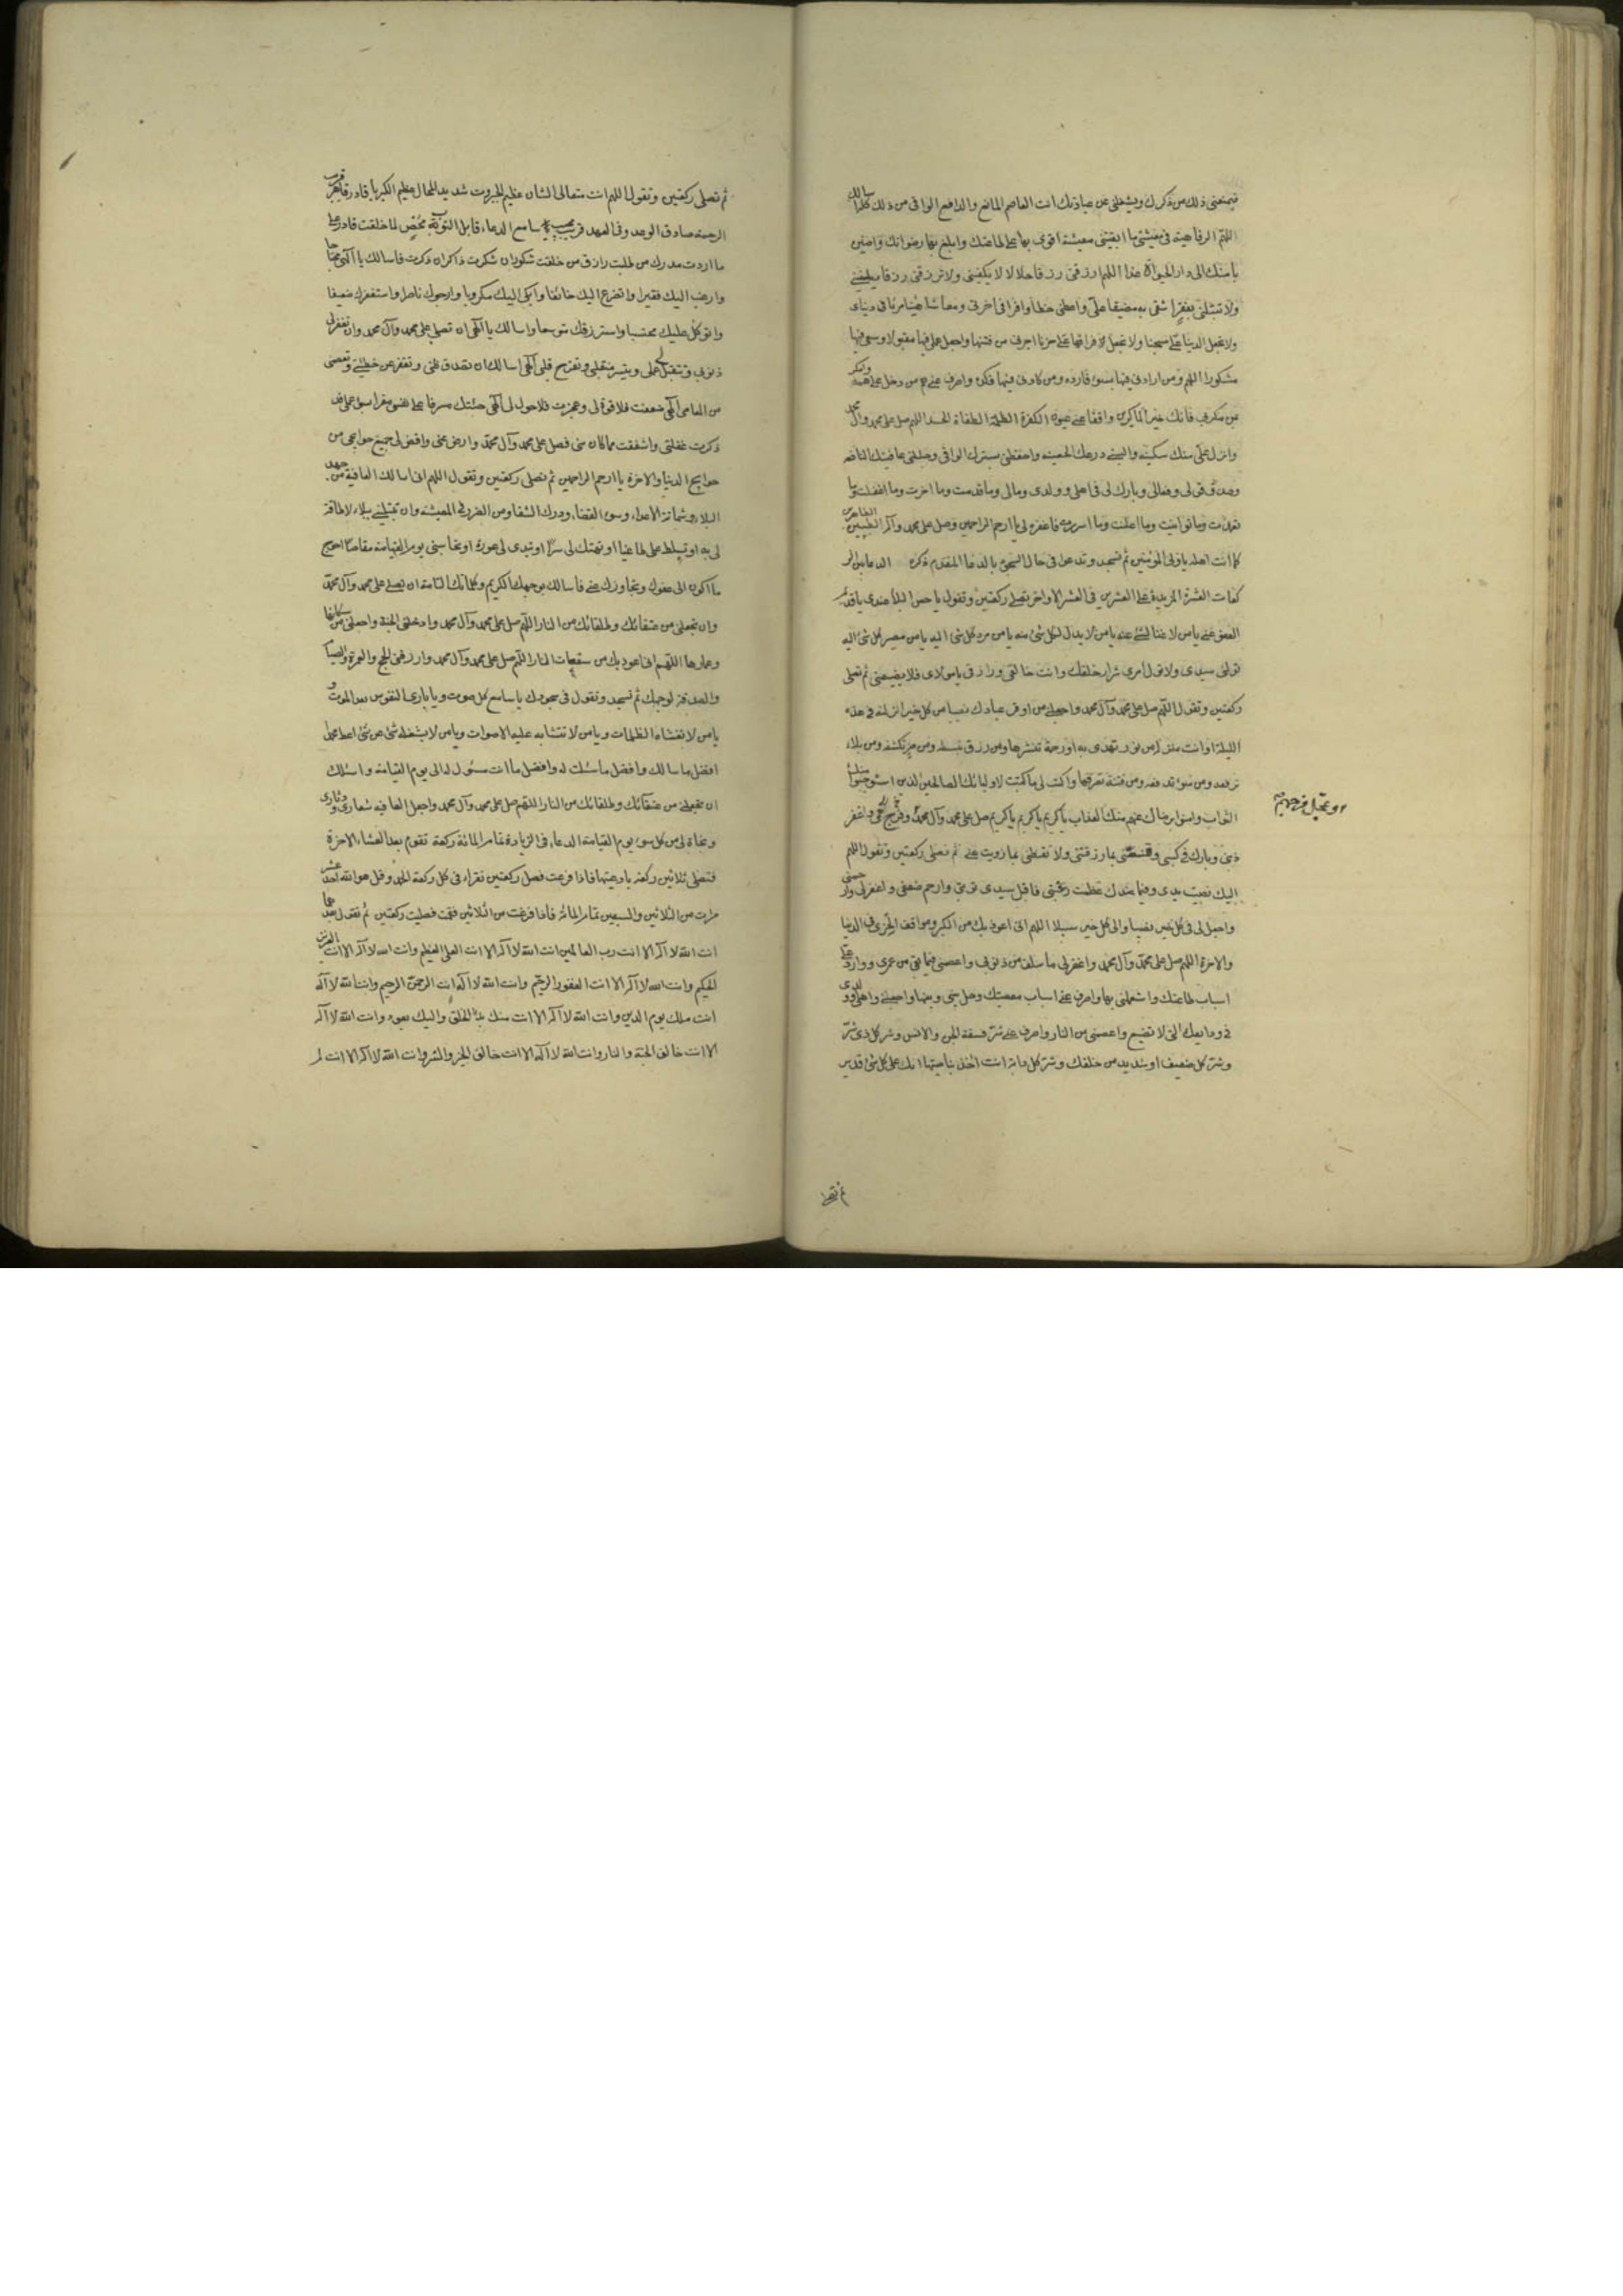 فيمنعني ذلك من ذكرك ويشغلني عن عبادتك انت العاصم المانع والدافع الواقي من ذلك كله اسالك
اللهم الرفاهية في معيشتي ما ابقيتني معيشة اقوى بها على طاعتك وابلغ بها رضوانك واصير
بها منك الى دار الحيوان غدا اللهم ارزقني رزقا حلالا لا يكفيني ولا ترزقني رزقا يطغيني
ولا تبتلني بفقر اشقى به مضيقا علي واعطني حظا وافرا في اخرتي ومعاشا هنيئا مريا في دنياي
ولا تجعل الدنيا علي سجنا ولا تجعل فراقها علي حزنا اجرني من فتنتها واجعل عملي فيها مقبولا وسعيي فيها
مشكورا اللهم ومن ارادني فيها بسوء فارده ومن كادني فيها فكده واصرف عني هم من ادخل علي همه وامكر
بمن مكر بي فانك خير الماكرين وافقا عني عيون الكفرة الظلمة الطغاة الحسدة اللهم صل على محمد وآل محمد
وانزل علي منك سكينة والبسني درعك الحصينة واحفظني بسترك الواقي وجللني عافيتك النافعة
وصدق قولي وفعالي وبارك لي في اهلي وولدي ومالي وما قدمت وما اخرت وما اغفلت وما
تعمدت وما توانيت وما اعلنت وما اسررت فاغفره لي يا ارحم الراحمين وصل على محمد وآله الطيبين الطاهرين
كما انت اهله يا ولي المؤمنين ثم تسجد وتدعوا في حال السجود بالدعا المقدم ذكره الدعا بين الر
كعات العشرة المزيد في على العشرين في العشر الاواخر تصلي ركعتين وتقول يا حسن البلاء عندي يا قديم
العفو عني يا من لا غنا لشئ عنه يا من لا بد لكل شئ منه يا من مرد كل شئ اليه يا من مصير كل شئ اليه
تولني سيدي ولا تول امري شرار خلقك وانت خالقي ورازقي يا مولاي فلا تضيعني ثم تصلي
ركعتين وتقول اللهم صل على محمد وآل محمد واجعلني من اوفر عبادك نصيبا من كل خير انزلته في هذه
الليلة او انت منزله من نور تهدي به او رحمة تنشرها ومن رزق تبسطه ومن ضر تكشفه ومن بلاء
ترفعه ومن سوء تدفعه ومن فتنة تصرفها واكتب لي ما كتبت لاوليائك الصالحين الذين استوجبوا منك
الثواب وامنوا برضاك عنهم منك العذاب يا كريم يا كريم يا كريم صل على محمد وآل محمد وعجل فرجهم وفرج همي واغفر لي
ذنبي وبارك في كسبي وقنعني بما رزقتني ولا تفتني بما زويت عني ثم تصلي ركعتين وتقول اللهم
اليك نصبت يدي وفيما عندك عظمت رغبتي فاقبل سيدي توبتي وارحم ضعفي واغفر لي وارحمني
واجعل لي في كل خير نصيبا والى كل خير سبيلا اللهم اني اعوذ بك من الكبر ومواقف الخزي في الدنيا
والاخرة اللهم صل على محمد وآل محمد واغفر لي ما سلف من ذنوبي واعصمني فيما بقي من عمري واورد علي
اسباب طاعتك واستعملني بها واصرف عني اسباب معصيتك وحل بيني وبينها واجعلني واهلي وولدي
في ودائعك التي لا تضيع واعصمني من النار واصرف عني شر فسقة الجن والانس وشر كل ذي شر
وشر كل ضعيف او شديد من خلقك وشر كل دابة انت اخذ بناصيتها انك على كل شئ قدير
ثم تصلي ركعتين وتقول اللهم انت متعالى الشان عظيم الجبروت شديد المحال عظيم الكبرياء قادر قاهر قريب
الرحمة صادق الوعد وفي العهد قريب مجيب سامع الدعاء قابل التوبة محص لما خلقت قادر على
ما اردت مدرك من طلبت رازق من خلقت شكور ان شكرت ذاكر ان ذكرت فاسالك يا الهي محتاجا
وارغب اليك فقيرا واتضرع اليك خائفا وابكي اليك مكروبا وارجوك ناصرا واستغفرك ضعيفا
واتوكل عليك محتسبا واسترزقك متوسعا واسالك يا الهي ان تصلي على محمد وآل محمد وان تغفر لي
ذنوبي وتتقبل عملي وتيسر منقلبي وتفرج قلبي الهي اسالك ان تصدق ظني وتغفر عن خطيئتي وتعصمني
من المعاصي الهي ضعفت فلا قوة لي وعجزت فلا حول لي الهي جئتك مسرفا على نفسي مقرا بسوء عملي قد
ذكرت غفلتي واشفقت مما كان مني فصل على محمد وآل محمد وارض عني واقض لي جميع حوائجي من
حوايج الدنيا والاخرة يا ارحم الراحمين ثم تصلي ركعتين وتقول اللهم اني اسالك العافية من جهد
البلاء وشماتة الاعداء وسوء القضاء ودرك الشقا ومن الضرر في المعيشة وان تبتليني ببلاء لا طاقة
لي به او تسلط علي طاغيا او تهتك لي سترا او تبدي لي عورة او تحاسبني يوم القيامة مقاصا احوج
ما اكون الى عفوك وتجاوزك عني فاسالك بوجهك الكريم وكلماتك التامة ان تصلي على محمد وآل محمد
وان تجعلني من عتقائك وطلقائك من النار اللهم صل على محمد وآل محمد وادخلني الجنة واجعلني من سكانها
وعمارها اللهم اني اعوذ بك من سفعات النار اللهم صل على محمد وآل محمد وارزقني الحج والعمرة والصيام
والصدقة لوجهك ثم تسجد وتقول في سجودك يا سامع كل صوت ويا بارئ النفوس بعد الموت و
يا من لا تغشاه الظلمات ويا من لا تتشابه عليه الاصوات ويا من لا يشغله شئ عن شئ اعط محمدا
افضل ما سالك وافضل ما سئلت له وافضل ما انت مسئول له الى يوم القيامة واسئلك
ان تجعلني من عتقائك وطلقائك من النار اللهم صل على محمد وآل محمد واجعل العافيه شعاري ودثاري
ونجاة لي من كل سوء يوم القيامة الدعاء في الزيادة تمام المائة ركعة تقوم بعد العشاء الاخرة
فتصلي ثلاثين ركعة بادعيتها فاذا فرغت فصل ركعتين تقراء في كل ركعة الحمد وقل هو الله احد عشر
مرات من الثلاثين والسبعين تمام المائة فاذا فرغت من الثلاثين فقمت فصليت ركعتين ثم تقول بعدهما
انت الله لا اله الا انت رب العالمين انت الله لا اله الا انت العلي العظيم وانت الله لا اله الا انت العزيز
الحكيم وانت الله لا اله الا انت الغفور الرحيم وانت الله لا اله انت الرحمن الرحيم وانت الله لا اله
انت ملك يوم الدين وانت الله لا اله الا انت منك بدء الخلق واليك يعود وانت الله لا اله
الا انت خالق الجنة والنار وانت الله لا اله الا انت خالق الخير والشر وانت الله لا اله الا انت لم